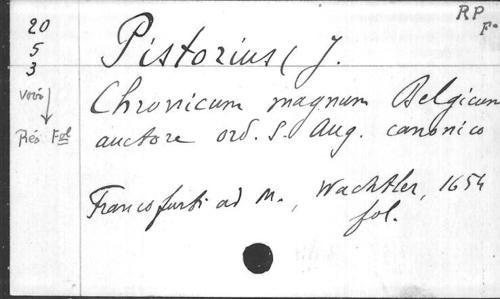 RP
F.
20
5
3
voir
Rés Fol
Pistorius ( J.
Chronicum magnum Belgicum
auctore ord. S. Aug. canonico
Francofurti ad M., Wachtler, 1654
fol.